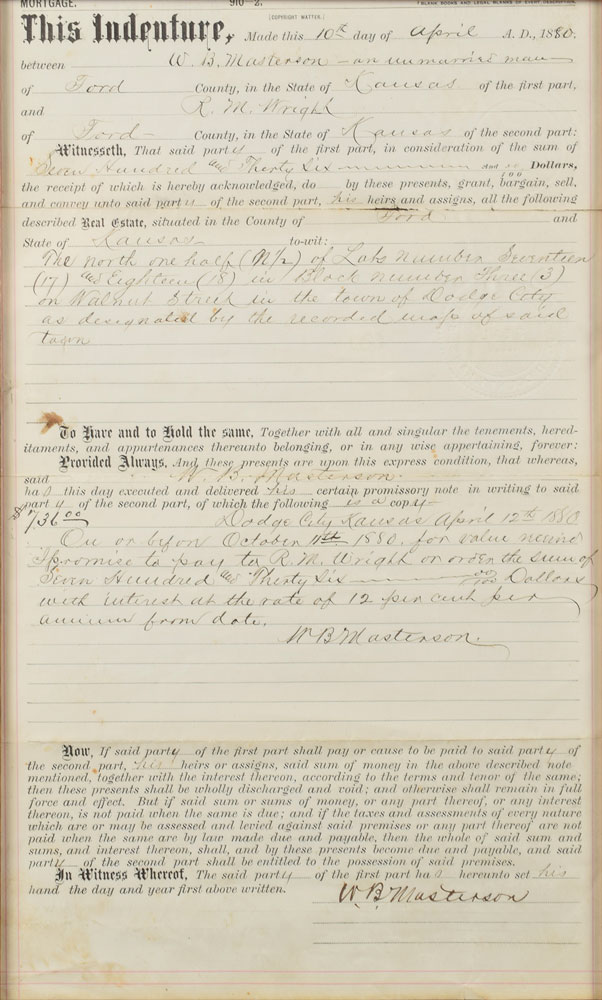 MORTGAGE. 910 2. BLANK BOOKS AND LEGAL BLANKS OF EVERY DESCRIPTION.
[COPYRIGHT MATTER.]
This Indenture, Made this 10th day of April A. D., 1880,
between W. B. Masterson - an unmarried man
of Ford County, in the State of Kansas of the first part,
and R. M. Wright
of Ford County, in the State of Kansas of the second part:
Witnesseth, That said party of the first part, in consideration of the sum of
Seven Hundred and Thirty Six and no/100 Dollars,
the receipt of which is hereby acknowledged, do by these presents, grant, bargain, sell,
and convey unto said party of the second part, his heirs and assigns, all the following
described Real Estate, situated in the County of Ford and
State of Kansas to-wit:
The north one half (N/2) of Lots Number Seventeen
(17) and Eighteen (18) in Block Number Three (3)
on Walnut Street in the town of Dodge City
as designated by the recorded map of said
town
To Have and to Hold the same, Together with all and singular the tenements, hered-
itaments, and appurtenances thereunto belonging, or in any wise appertaining, forever:
Provided Always, And these presents are upon this express condition, that whereas,
said W. B. Masterson
has this day executed and delivered his certain promissory note in writing to said
party of the second part, of which the following is a copy
$736.00 Dodge City Kansas April 12th 1880
On or before October 11th 1880. for value received
I promise to pay to R. M. Wright or order the sum of
Seven Hundred and Thirty Six no/100 Dollars
with interest at the rate of 12 per cent per
annum from date.
W B Masterson.
Now, If said party of the first part shall pay or cause to be paid to said party of
the second part, his heirs or assigns, said sum of money in the above described note
mentioned, together with the interest thereon, according to the terms and tenor of the same;
then these presents shall be wholly discharged and void; and otherwise shall remain in full
force and effect. But if said sum or sums of money, or any part thereof, or any interest
thereon, is not paid when the same is due; and if the taxes and assessments of every nature
which are or may be assessed and levied against said premises or any part thereof are not
paid when the same are by law made due and payable, then the whole of said sum and
sums, and interest thereon, shall, and by these presents become due and payable, and said
party of the second part shall be entitled to the possession of said premises.
In Witness Whereof, The said party of the first part has hereunto set his
hand the day and year first above written. W. B. Masterson